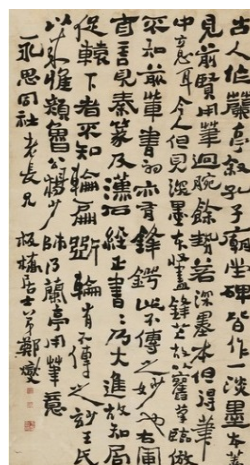 古人作蘭亭叙孔子廟堂碑皆作一淡墨本蓋
見前賢用筆迴腕餘勢若深墨本但得筆
中意耳今人但見深墨本收書鋒芒故以舊筆臨倣
不知前輩書初亦有鋒鍔此不傳之妙也右軍
自言見秦篆及漢石經正書書乃大進故知局
促轅下者不知輪扁斲輪有不傳之妙王氏
以來惟顏魯公楊少師得蘭亭用筆意
永思同社老長兄
板橋居士弟鄭燮